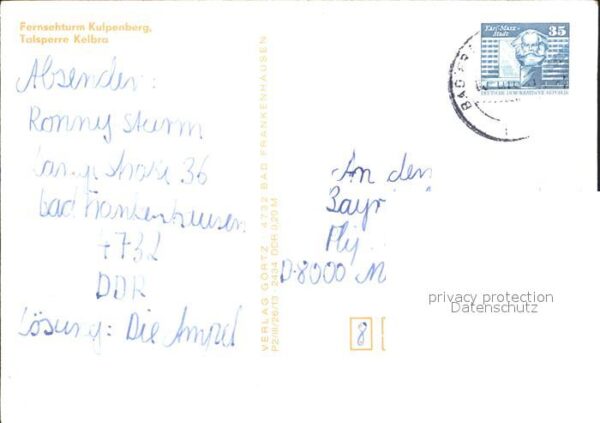 Fernsehturm Kulpenberg,
Talsperre Kelbra
Absender:
Ronny Sturm
Langestraße 36
bad Frankenhausen
4732
DDR
Lösung: Die Ampel
VERLAG GÖRTZ · 4732 BAD FRANKENHAUSEN
P2/III/26/13 · 2434 DDR 0,20 M
Karl-Marx-
Stadt
35
DEUTSCHE DEMOKRATISCHE REPUBLIK
BAD
An den
Bayr
D-8000 M
8
privacy protection
Datenschutz